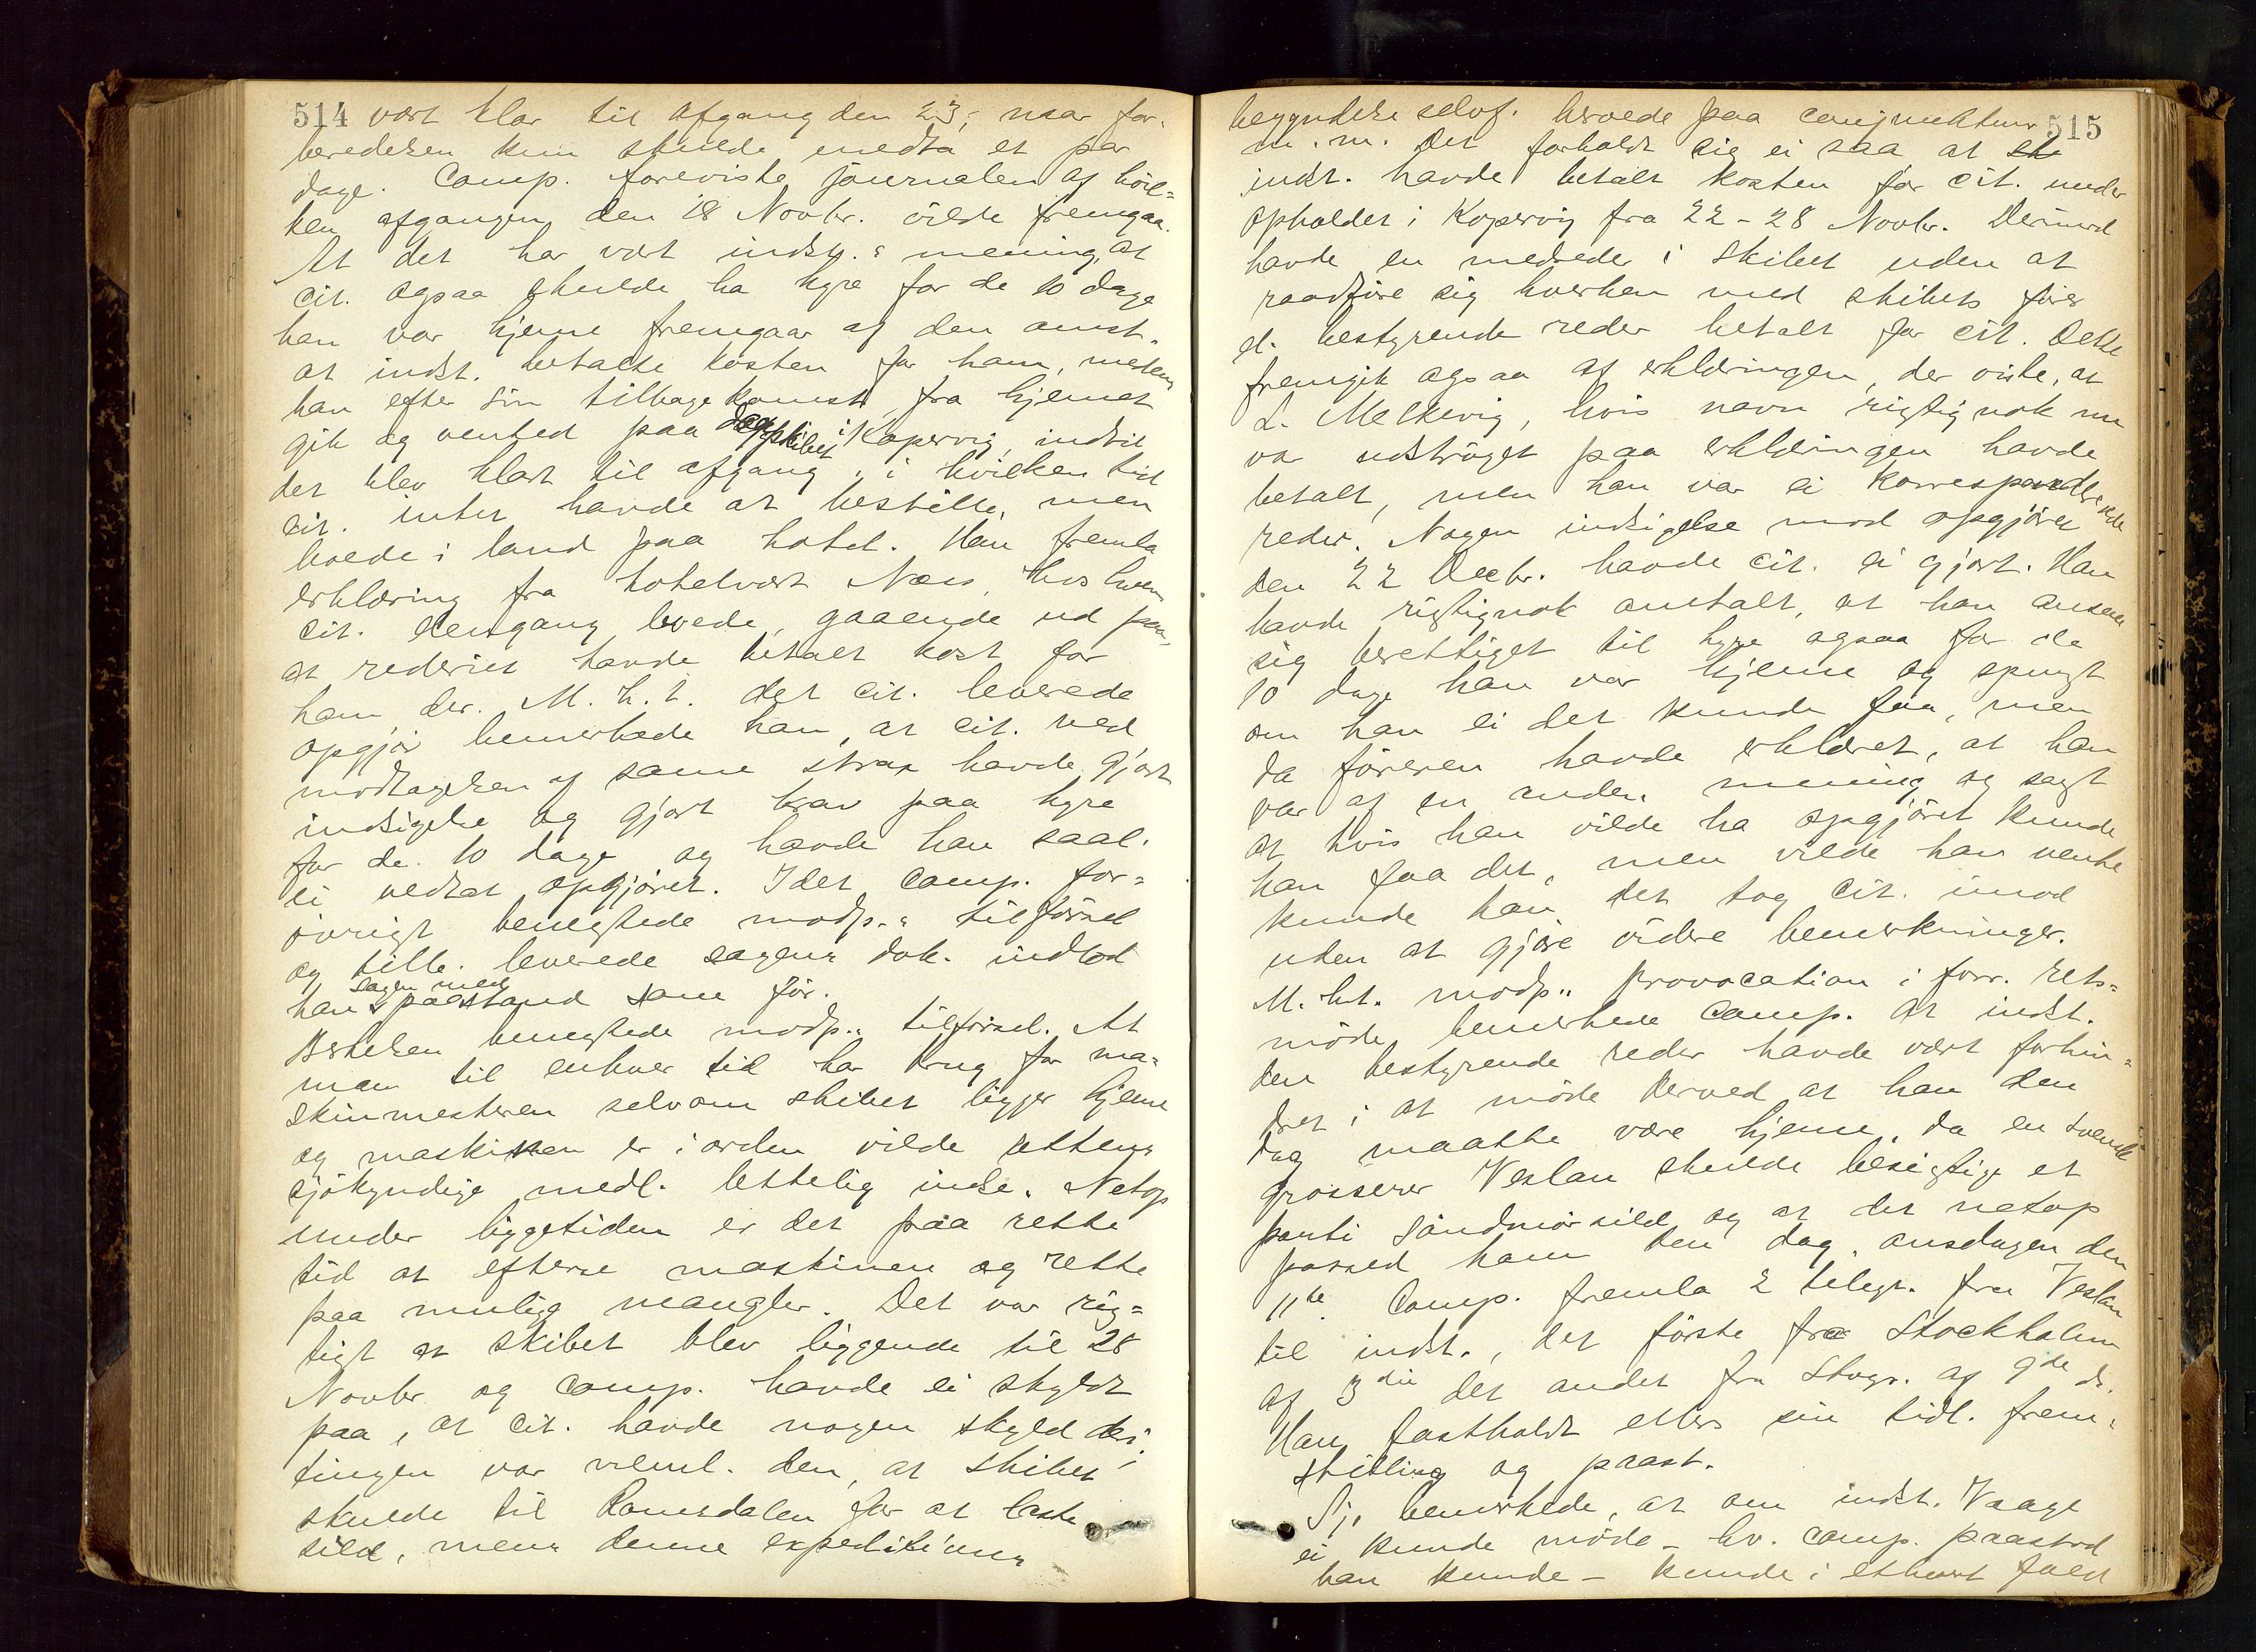 514 vært klar til afgang den 23; naar for-
beredelsen kun skulde medta et par
dage. Comp. foreviste journalen af hvil-
ken afgangen den 28 Novbr. vilde fremgaa.
At det har vært indst.s mening, at
cit. ogsaa skulde ha hyre for de 10 dage
han var hjeme fremgaar af den omst.
at indst. betalte kosten for ham, medens
han efter sin tilbagekomst fra hjemet
gik og vented paa skibet i Kopervig indtil
det blev klart til afgang, i hvilken tid
cit. intet havde at bestille, men
boede i land paa hotel. Han fremla
erklæring fra hotelvært Næss, hos hvem
cit. dengang boede, gaaende ud paa,
at rederiet havde betalt kost for
ham der. M. h. t. det cit. leverede
opgjør bemerkede han, at cit. ved
modtagelsen af same strax havde gjort
indsigelse og gjort krav paa hyre
for de 10 dage og havde han saal.
ei vedtat opgjøret. Idet Comp. for-
øvrigt benegtede modp.s tilførsel
og tille. leverede sagens dok. indlod
han sagen med paastand som før.
Bertelsen benegtede modp.s tilførsel. At
man til enhver tid har brug for ma-
skinmesteren selvom skibet ligger hjeme
og maskinen er i orden vilde rettens
sjøkyndige medl. lettelig indse. Netop
under liggetiden er det paa rette
tid at efterse maskinen og rette
paa mulige mangler. Det var rig-
tigt at skibet blev liggende til 28
Novbr og Comp. havde ei skyldt
paa, at cit. havde nogen skyld deri;
tingen var neml. den, at skibet
skulde til Romsdalen for at laste
sild, mens denne expeditions
515
begyndelse selvf. beroede paa conjunkturer
m. m. Det forholdt sig ei saa at
indst. havde betalt kosten for cit. under
opholdet i Kopervig fra 22-28 Novbr. Derimod
havde en medreder i skibet uden at
raadføre sig hverken med skibets fører
el. bestyrende reder betalt for cit. Dette
fremgik ogsaa af erklæringen, der viste, at
L. Melkevig, hvis navn rigtignok nu
va udstrøget paa erklæringen havde
betalt, men han var ei korresponderende
reder. Nogen indsigelse mod opgjøret
den 22 Decbr. havde cit. ei gjort. Han
havde rigtignok omtalt, at han ansaa
sig berettiget til hyre ogsaa for de
10 dage han var hjeme og spurgt
om han ei det kunde faa, men
da føreren havde erklæret, at han
var af en anden mening og sagt
at hvis han vilde ha opgjøret kunde
han faa det, men vilde han vente
kunde han det tog cit. imod
uden at gjøre videre bemerkninger.
M. h. t. modp.s provocation i forr. rets-
møde bemerkede Comp. at indst.
den bestyrende reder havde vært forhin-
dret i at møde derved at han den
dag maatte være hjeme, da en svensk
grosserer Veslau skulde besigtige et
parti søndmørsild og at det netop
passed ham den dag, onsdagen den
11te. Comp. fremla 2 telegr. fra Veslau
til indst., det første fra Stockholm
af 3die det andet fra Stvgr. af 9de ds.
Han fastholdt ellers sin tidl. frem-
stilling og paast.
Sj. bemerkede, at om indst. Vaage
ei kunde møde - hv. Comp. paastod
han kunde - kunde i ethvert fald